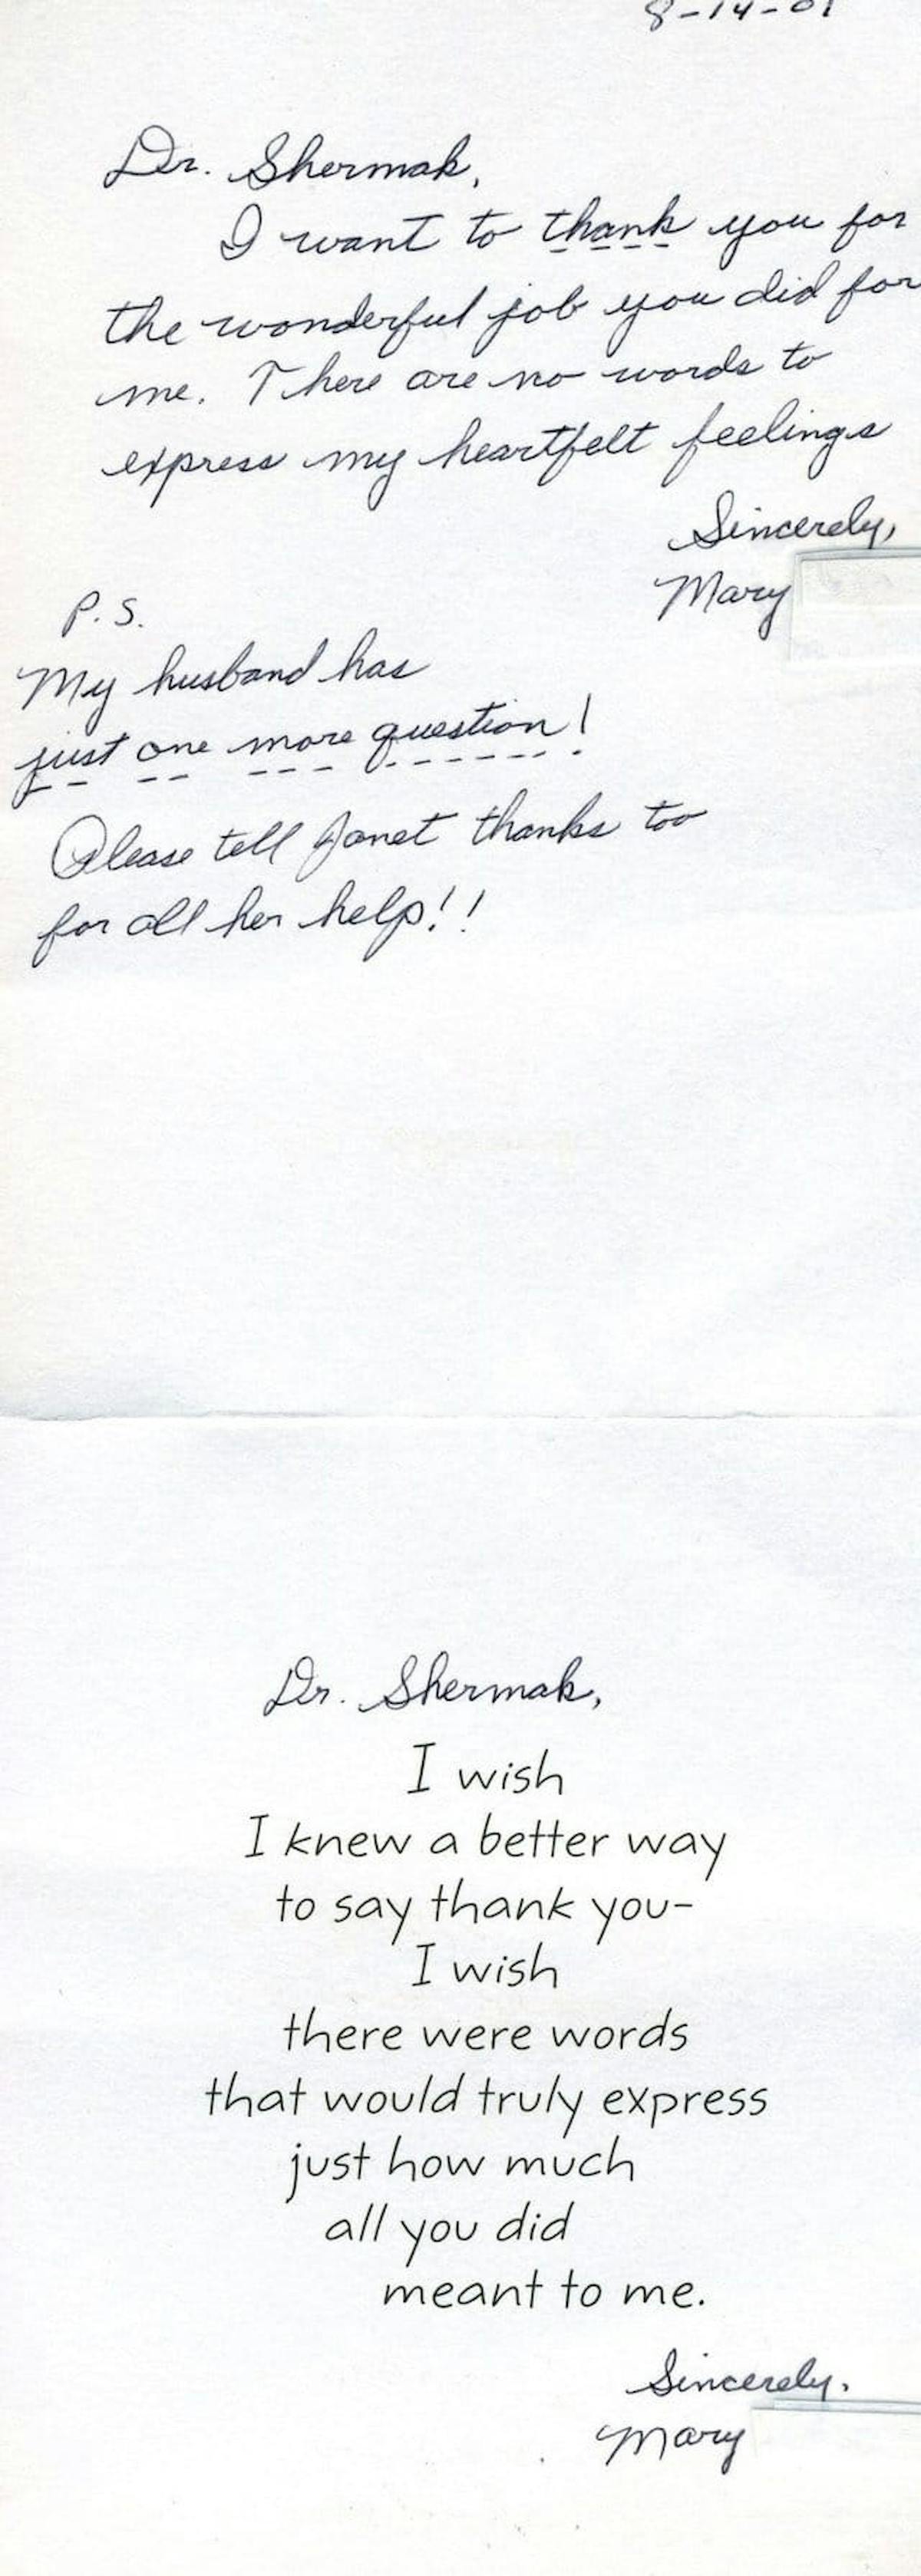 8-14-01
Dr. Shermak,
I want to thank you for
the wonderful job you did for
me. There are no words to
express my heartfelt feelings
Sincerely,
Mary
P.S.
My husband has
just one more question!
Please tell Janet thanks too
for all her help!!
Dr. Shermak,
I wish
I knew a better way
to say thank you-
I wish
there were words
that would truly express
just how much
all you did
meant to me.
Sincerely,
Mary